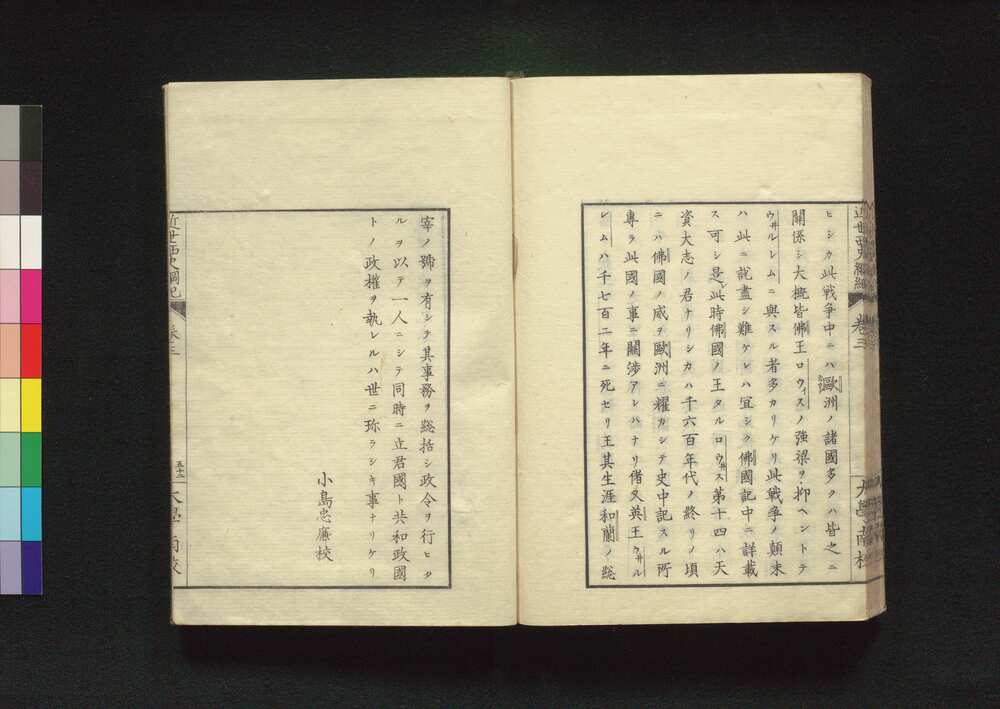 ヒシカ此戰爭中ニハ歐洲ノ諸國多クハ皆之ニ
關係シ大概皆佛王ロウィスノ強梁ヲ抑ヘントテ
ウ井ルレムニ與スル者多カリケリ此戰爭ノ顛末
ハ此ニ說盡シ難ケレハ宜シク佛國記中ニ詳載
ス可シ是此時佛國ノ王タルロウ井ス第十四ハ天
資大志ノ君ナリシカハ千六百年代ノ終リノ頃
ニハ佛國ノ威ヲ歐洲ニ耀カシテ史中記スル所
專ラ此國ノ事ニ關涉アレハナリ偖又英王ウ井ル
レムハ千七百二年ニ死セリ王其生涯和蘭ノ総
近世西史綱紀
卷三
大學南校
宰ノ號ヲ有シテ其事務ヲ総括シ政令ヲ行ヒタ
ルヲ以テ一人ニシテ同時ニ立君國ト共和政國
トノ政權ヲ執レルハ世ニ珎ラシキ事ナリケリ
小島忠廉校
近世西史綱紀
卷三